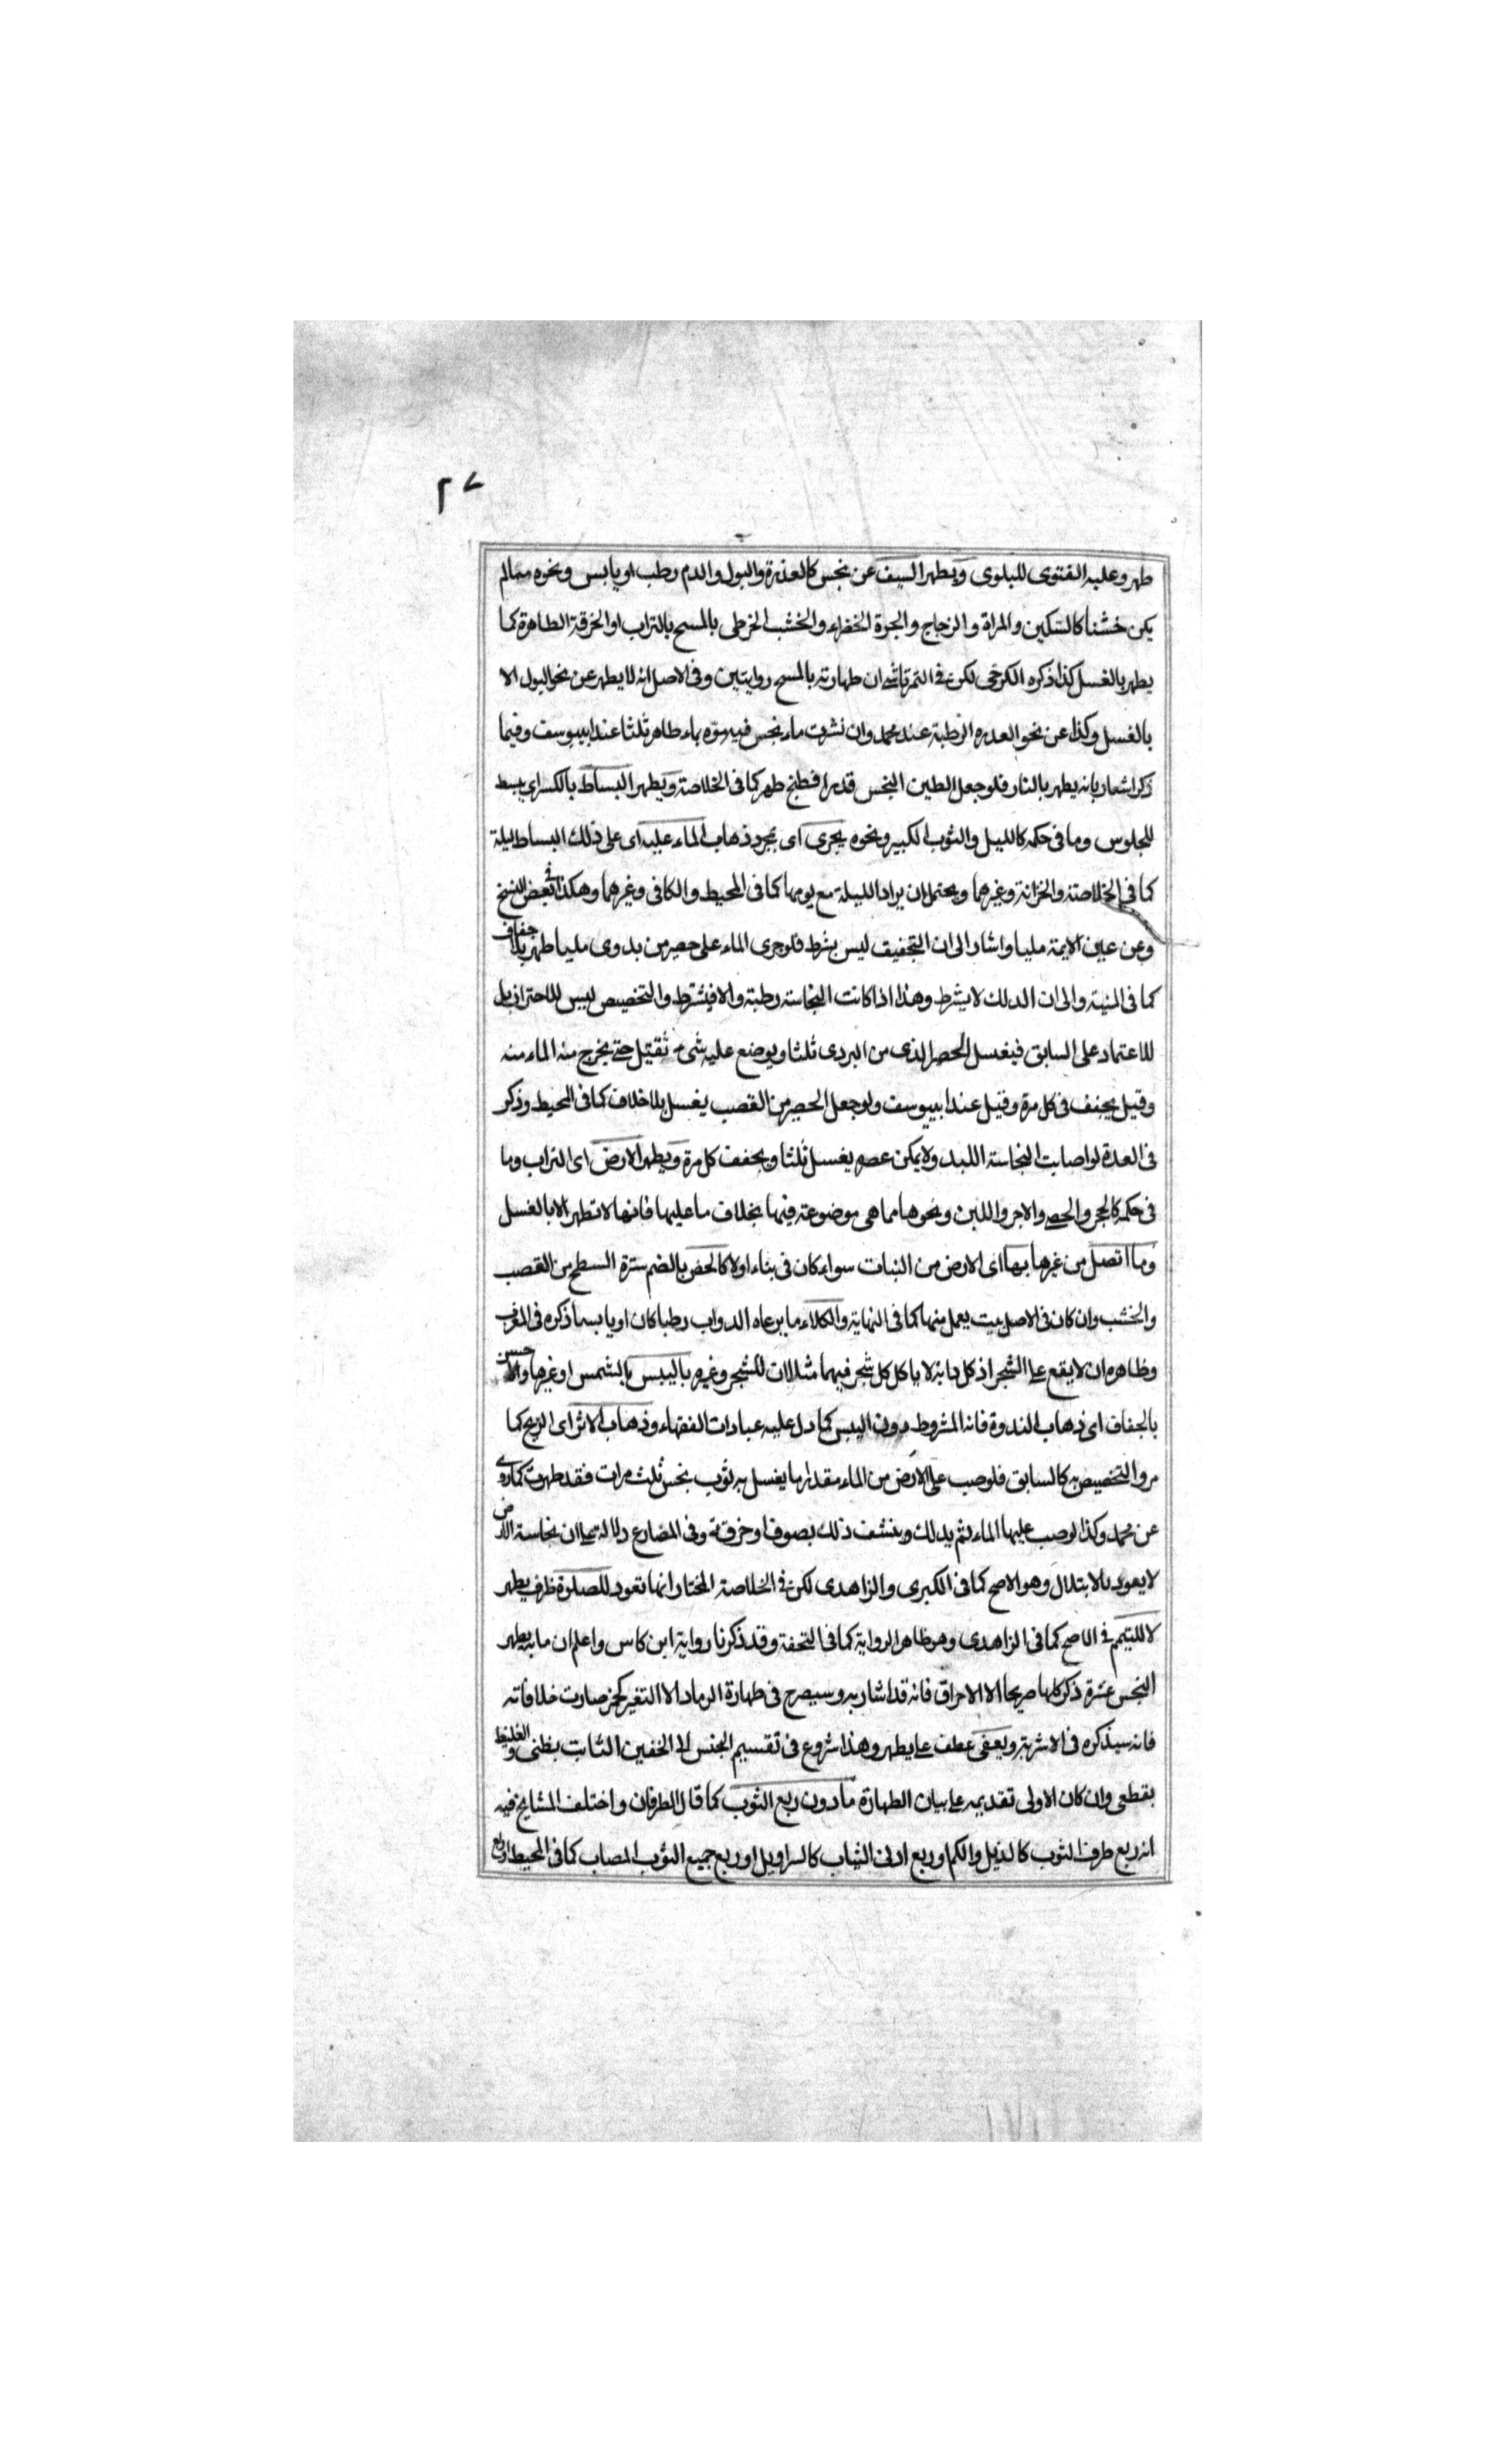 ٢٧
طهر وعليه الفتوى للبلوى ويطهر السيف عن نجس كالعذرة والبول والدم رطب او يابس ونحوه مما لم
يكن خشنا كالسكين والمراة والزجاج والجرة الخضراء والخشب الخرطى بالمسح بالتراب او الخرقة الطاهرة كما
يطهر بالغسل كذا ذكره الكرخى لكن فى التمرتاشى ان طهارته بالمسح روايتين وفى الاصل انه لا يطهر عن نحو البول الا
بالغسل وكذا عن نحو العدره الرطبة عند محمد وان نشرت ماء نجس فيه موّه بماء طاهر ثلثا عند ابيوسف وفيما
ذكر اشعار بانه يطهر بالنار فلو جعل الطين النجس قدرا فطبخ طهر كما فى الخلاصة ويطهر البساط بالكسر اى يبسط
للجلوس وما فى حكمه كالليل والثوب الكبير ونحوه يجرى اى بمجرد ذهاب الماء عليه اى على ذلك البساط ليلة
كما فى الخلاصة والخزانة وغيرهما ويحتمل ان يراد الليلة مع يومها كما فى المحيط والكافى وغيرهما وهكذا فى بعض النسخ
وعن عين الايمة مليا واشار الى ان التجفيف ليس بشرط فلو جرى الماء على حصير من بدوى مليا طهر بلا جفاف
كما فى المنية والى ان الدلك لا يشرط وهذا اذا كانت النجاسة رطبة والا فيشترط والتخصيص ليس للاحتراز بل
للاعتماد على السابق فيغسل الحصير الذى من البردى ثلثا ويوضع عليه شىء ثقيل حتى يخرج منه الماء منه
وقيل يجفف فى كل مرة وقيل عند ابيوسف ولو جعل الحصير من القصب يغسل بلا خلاف كما فى المحيط وذكر
فى العدة لو اصابت النجاسة اللبد ولا يمكن عصره يغسل ثلثا ويجفف كل مرة ويطهر الارض اى التراب وما
فى حكمه كالحجر والحصى والاجر واللبن ونحوها مما هى موضوعة فيها بخلاف ما عليها فانها لا تطهر الا بالغسل
وما اتصل من غيرها بها اى الارض من النبات سواء كان فى بناء اولا كالخص بالضم سترة السطح من القصب
والخشب وان كان فى الاصل بيت يعمل منها كما فى النهاية والكلاء ما يرعاه الدواب رطبا كان او يابسا ذكره فى المغرب
وظاهره ان لا يقع على الشجر اذ كل دابة لا ياكل كل شجر فيهما مثلان للشجر وغيره باليبس بالشمس او غيرها والاحسن
بالجفاف اى ذهاب الندوة فانه المشروط دون اليبس كما دل عليه عبادات الفقهاء وذهاب الاثر اى الريح كما
مر والتخصيص به كالسابق فلو صب على الارض من الماء مقدار ما يغسل به ثوب نجس ثلث مرات فقد طهرت كما روى
عن محمد وكذا لو صب عليها الماء ثم يدلك وينشف ذلك بصوف او خرقة وفى المضارع دلالة على ان نجاسة الارض
لا يعود بالابتلال وهو الاصح كما فى الكبرى والزاهدى لكن فى الخلاصة المختار انها تعود للصلوة ظرف يطهر
لا للتيمم فى الاصح كما فى الزاهدى وهو ظاهر الرواية كما فى التحفة وقد ذكرنا رواية ابن كاس واعلم ان ما به يطهر
النجس عشرة ذكر كلها صريحا الا الاحراق فانه قد اشار به وسيصرح فى طهارة الرماد الا التغير كخمر صارت خلا فانه
فانه سيذكره فى الاشربة ويعفى عطف على يطهر وهذا شروع فى تقسيم الجنس الى الخفين الثابت بظنى والغليظ
بقطعى وان كان الاولى تقديمه على بيان الطهارة ما دون ربع الثوب كما قال الطرفان واختلف المشايخ فيه
انه ربع طرف الثوب كالذيل والكم او ربع ادنى الثياب كالسراويل او ربع جميع الثوب المصاب كما فى المحيط